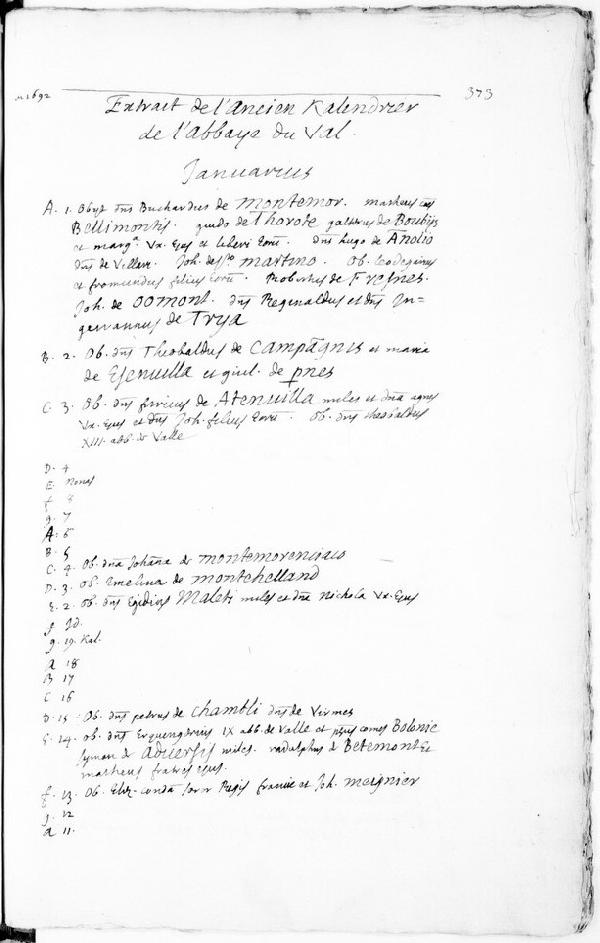 n 1692
373
Extrait de l'Ancien Kalendrier
de l'abbaye du Val.
Januarius
A. 1. Obijt dns Buchardus de montemor. matheus coes
Bellimontis. guido de Thorote galterus de Boubijs
et marg.a Vx. Ejus et liberi eoru. dns hugo de Andio
dns de Villari. Joh. de sto martino. Ob. Codeginus
et fromundus filius eoru. Robertus de Fresnes.
Joh. de Oomont. dns Reginaldus et dns In=
gerrannus de Trya
B. 2. Ob. dns Theobaldus de Campagnis et maria
de Esenuilla et guil. de pnes
C. 3. Ob. dns de Atenuilla miles et dna agnes
Vx. Ejus et dns Joh. filius eoru. Ob. dns theobaldus
XIII. abb. de Valle
D. 4
E. Nonas
f 8
g. 7
A. 6
B. 5
C. 4. Ob. dna Johana de montemorenciaco
D. 3. Ob. Emelina de montchelland
E. 2. Ob. dns Egidius Maleti miles et dna Nichola Vx. Ejus
f Id.
g. 19. Kal.
a 18
B 17
C 16
D. 15. Ob. dns petrus de Chambli dns de Virmes
E. 14. Ob. dns Erquengerius IX abb. de Valle et comes Bolonie
symon de Aduersis miles. radulphus de Betemont Et
matheus frater ejus.
f. 13. Ob. Eliz. condam soror Regis francie et Joh. Meignier
g. 12
a 11.